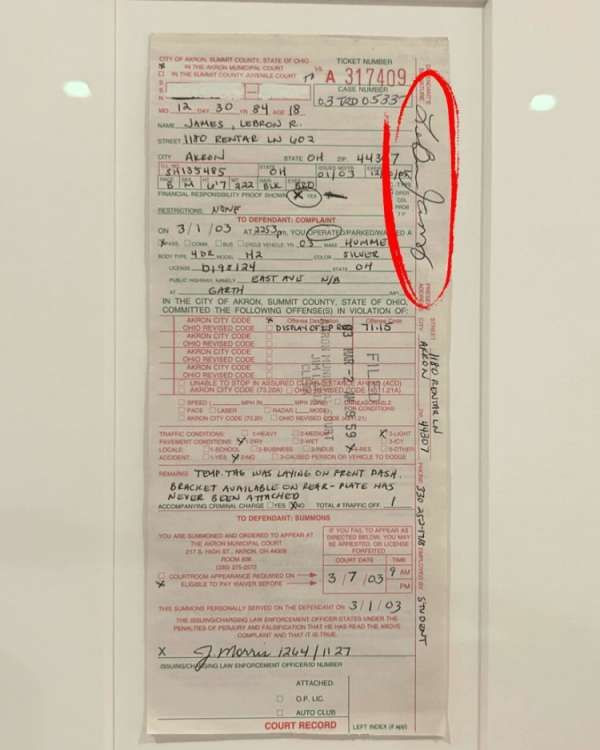 CITY OF AKRON, SUMMIT COUNTY, STATE OF OHIO
X IN THE AKRON MUNICIPAL COURT
☐ IN THE SUMMIT COUNTY JUVENILE COURT
TICKET NUMBER
A 317409
CASE NUMBER
03 TRD 0533
MO. 12 DAY 30 YR. 84 AGE 18
NAME JAMES, LEBRON R.
STREET 1180 RENTAR LN 602
CITY AKRON STATE OH ZIP
OH 01/03
B M 6'7 222 BLK BRO
FINANCIAL RESPONSIBILITY PROOF SHOWN X YES
RESTRICTIONS: NONE
TO DEFENDANT: COMPLAINT
ON 3/1/03 AT 2253 PM, YOU OPERATED/PARKED/WALKED A
X PASS. ☐ COMM. ☐ BUS ☐ CYCLE VEHICLE: YR. 03 MAKE HUMME
BODY TYPE 4DR MODEL H2 COLOR SILVER
LICENSE D198124 STATE OH
PUBLIC HIGHWAY, NAMELY EAST AVE N/B
AT GARTH
IN THE CITY OF AKRON, SUMMIT COUNTY, STATE OF OHIO,
COMMITTED THE FOLLOWING OFFENSE(S) IN VIOLATION OF:
AKRON CITY CODE X Offense Description Offense Code
OHIO REVISED CODE ☐ DISPLAY OF 71.15
AKRON CITY CODE ☐
OHIO REVISED CODE ☐
AKRON CITY CODE ☐
OHIO REVISED CODE ☐
AKRON CITY CODE ☐
OHIO REVISED CODE ☐
☐ UNABLE TO STOP IN ASSURED CLEAR DISTANCE AHEAD (ACD)
☐ AKRON CITY CODE (73.20A) ☐ OHIO REVISED CODE
FILED
☐ SPEED ( MPH IN MPH ZONE) ☐ UNREASONABLE
☐ PACE ☐ LASER ☐ RADAR ( MODE) FOR CONDITIONS
☐ AKRON CITY CODE (73.20) ☐ OHIO REVISED CODE
TRAFFIC CONDITIONS: ☐ 1-HEAVY ☐ 2-MEDIUM X 3-LIGHT
PAVEMENT CONDITIONS: X 1-DRY ☐ 2-WET ☐ 3-ICY
LOCALE: ☐ 1-SCHOOL ☐ 2-BUSINESS ☐ 3-IND X 4-RES ☐ 5-OTHER
ACCIDENT: ☐ 1-YES X 2-NO ☐ 3-CAUSED PERSON OR VEHICLE TO DODGE
REMARKS: TEMP. TAG WAS LAYING ON FRONT DASH.
BRACKET AVAILABLE ON REAR-PLATE HAS
NEVER BEEN ATTACHED
ACCOMPANYING CRIMINAL CHARGE ☐ YES X NO TOTAL # TRAFFIC OFF. 1
TO DEFENDANT: SUMMONS
YOU ARE SUMMONED AND ORDERED TO APPEAR AT
THE AKRON MUNICIPAL COURT
217 S. HIGH ST., AKRON, OH 44308
IF YOU FAIL TO APPEAR AS
DIRECTED BELOW, YOU MAY
BE ARRESTED, OR LICENSE
FORFEITED
COURT DATE TIME
3/7/03 9 AM
PM
☐ COURTROOM APPEARANCE REQUIRED ON
X ELIGIBLE TO PAY WAIVER BEFORE
THIS SUMMONS PERSONALLY SERVED ON THE DEFENDANT ON 3/1/03
THE ISSUING/CHARGING LAW ENFORCEMENT OFFICER STATES UNDER THE
PENALTIES OF PERJURY AND FALSIFICATION THAT HE HAS READ THE ABOVE
COMPLAINT AND THAT IT IS TRUE.
X J Morris 1264/1127
ISSUING/CHARGING LAW ENFORCEMENT OFFICER/ID NUMBER
ATTACHED
☐ O.P. LIC.
☐ AUTO CLUB
COURT RECORD LEFT INDEX (if appl)
LeBron James
STREET 1180 RENTAR LN
CITY AKRON ZIP 44307
EMPLOYED BY STUDENT